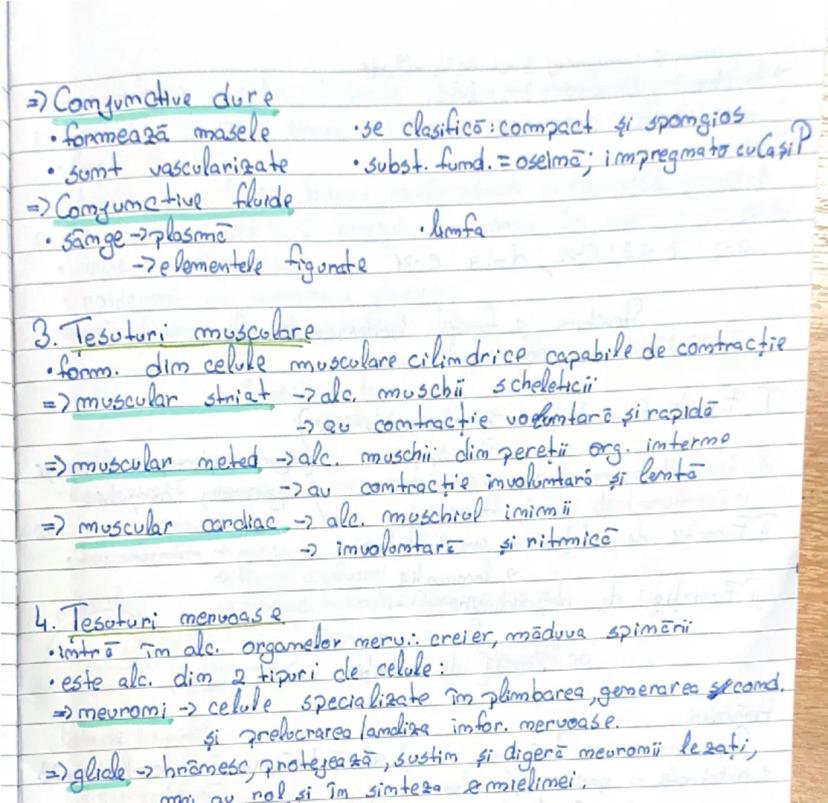 => Conjunctive dure
• formează oasele • se clasifică: compact și spongios
• sunt vascularizate • subst. fund. = oseină; impregnată cu Ca și P
=> Conjunctive fluide
• sânge -> plasmă • limfa
-> elementele figurate
3. Țesuturi musculare
• form. din celule musculare cilindrice capabile de contracție
=> muscular striat -> alc. mușchii scheletici
-> au contracție voluntară și rapidă
=> muscular neted -> alc. mușchii din pereții org. interne
-> au contracție involuntară și lentă
=> muscular cardiac -> alc. mușchiul inimii
-> involuntară și ritmică
4. Țesuturi nervoase
• intră în alc. organelor nerv.: creier, măduva spinării
• este alc. din 2 tipuri de celule:
=> neuroni -> celule specializate în plimbarea, generarea și cond.
și prelucrarea/analiza infor. nervoase.
=> gliale -> hrănesc, protejează, susțin și digeră neuronii lezați,
mai au rol și în sinteza mielinei.